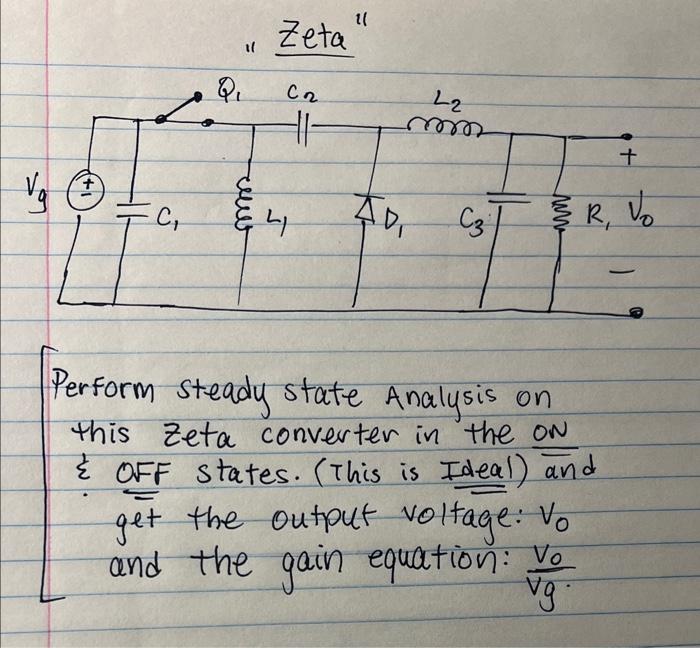 "Zeta"
Q1 C2 L2
+
Vg ± C1 L1 D1 C3 R1 Vo
−
Perform steady state Analysis on
this Zeta converter in the ON
& OFF states. (This is Ideal) and
get the output voltage: Vo
and the gain equation: Vo
Vg.